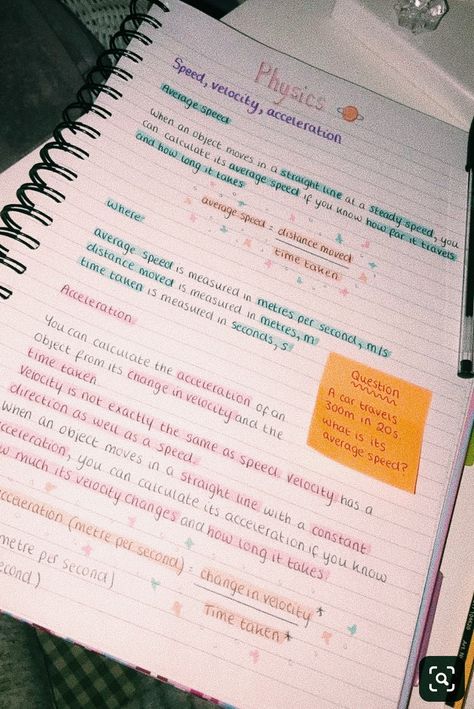 Physics
Speed, velocity, acceleration
Average speed
When an object moves in a straight line at a steady speed, you
can calculate its average speed if you know how far it travels
and how long it takes
average speed = distance moved
time taken
where:
average speed is measured in metres per second, m/s
distance moved is measured in metres, m
time taken is measured in seconds, s
Acceleration
You can calculate the acceleration of an
object from its change in velocity and the
time taken
Velocity is not exactly the same as speed. Velocity has a
direction as well as a speed.
when an object moves in a straight line with a constant
acceleration, you can calculate its acceleration if you know
how much its velocity changes and how long it takes
acceleration (metre per second) = change in velocity *
Time taken *
metre per second]
second)
Question
A car travels
300m in 20s.
what is its
average speed?